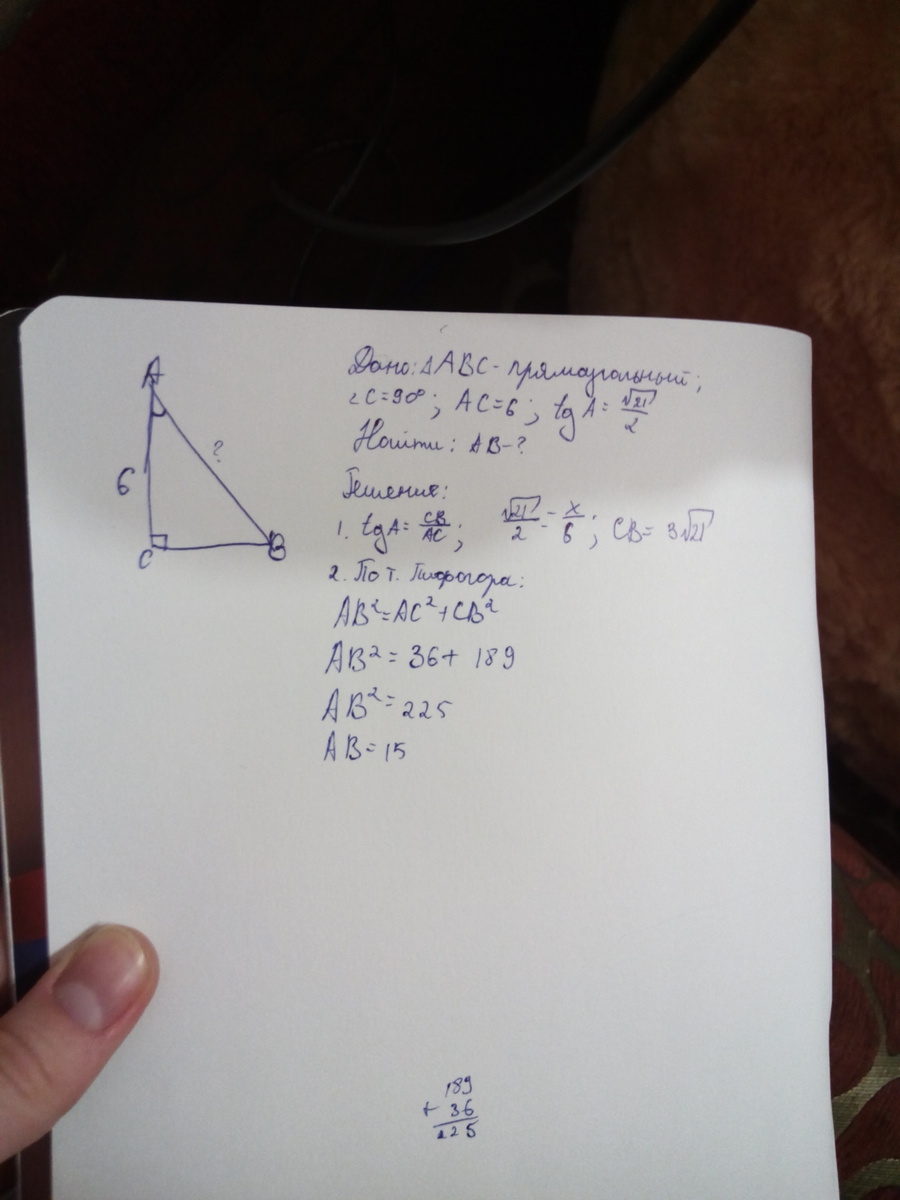 Дано: ΔABC - прямоугольный;
∠C=90°; AC=6; tg A = √21/2
Найти: AB-?
Решения:
1. tgA= CB/AC; √21/2 = x/6; CB= 3√21
2. По т. Пифагора:
AB²=AC²+CB²
AB² = 36+ 189
AB²= 225
AB= 15
A
?
6
C
B
189
+ 36
225